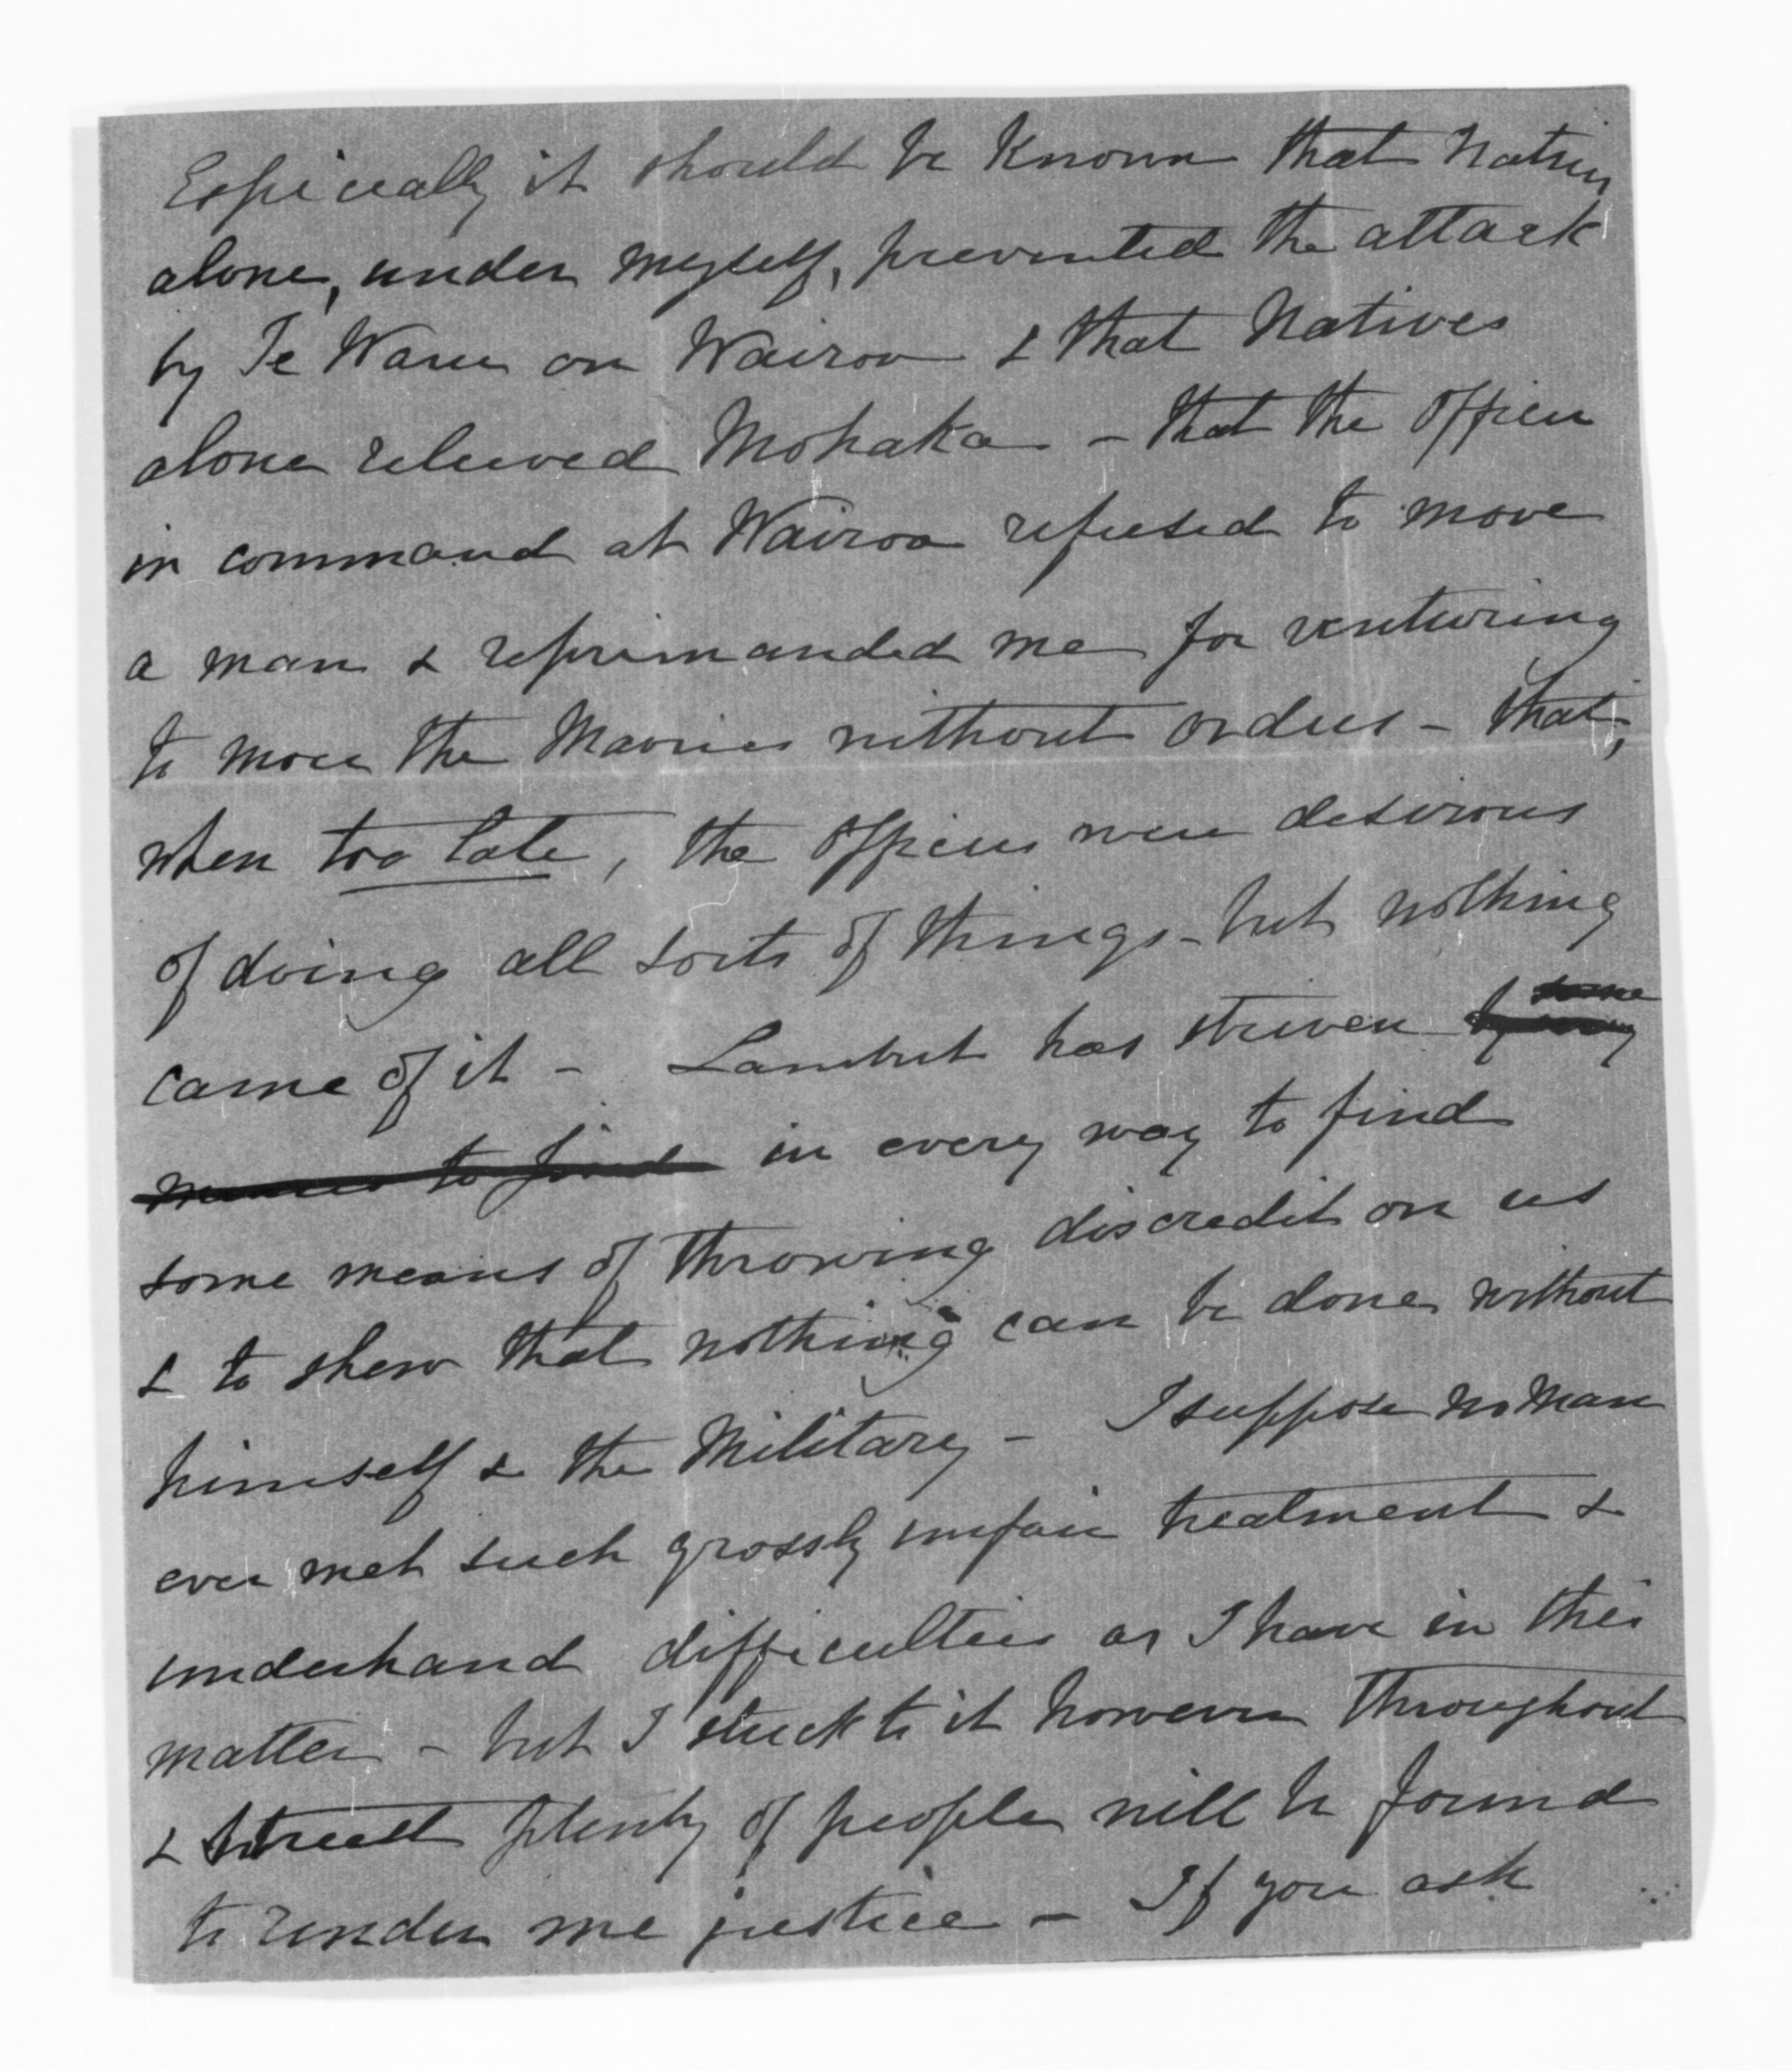 Especially it should be known that Natives
alone, under myself, prevented the attack
by Te Waru on Wairoa & that Natives
alone relieved Mohaka - that the officer
in command at Wairoa refused to move
a man & reprimanded me for venturing
to move the Maories without orders - that,
when too late, the officers were desirous
of doing all sorts of things - but nothing
came of it - Lambert has striven by some
means to find in every way to find
some means of throwing discredit on us
& to shew that nothing can be done without
himself & the Military - I suppose no man
ever met such grossly unfair treatment &
underhand difficulties as I have in this
matter - but I stuck to it however throughout
& plenty of people will be found
to render me justice - If you ask